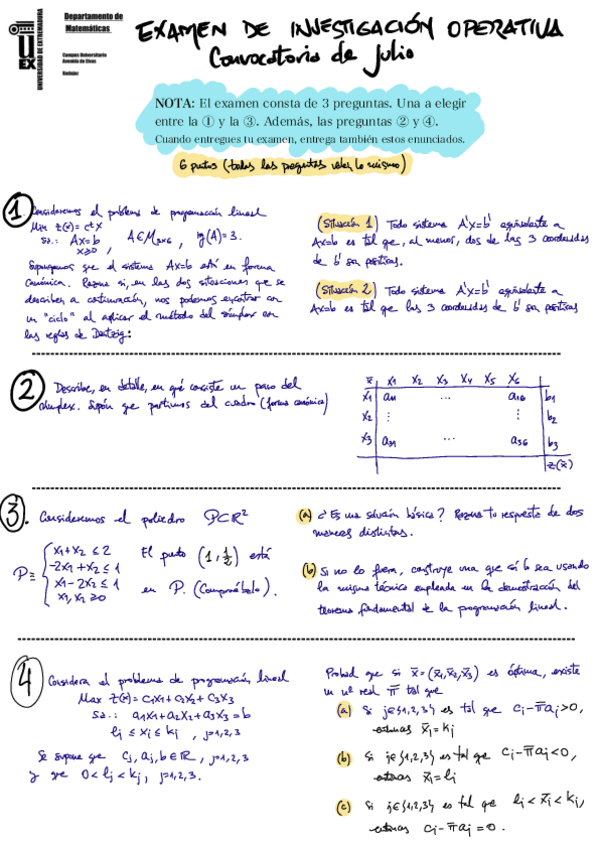 UNIVERSIDAD DE EXTREMADURA
UEX
Departamento de
Matemáticas
Campus Universitario
Avenida de Elvas
Badajoz
EXAMEN DE INVESTIGACIÓN OPERATIVA
Convocatoria de Julio
NOTA: El examen consta de 3 preguntas. Una a elegir
entre la ① y la ③. Además, las preguntas ② y ④.
Cuando entregues tu examen, entrega también estos enunciados.
6 puntos (todas las preguntas valen lo mismo)
1 Consideremos el problema de programación lineal
Min z(x) = cᵗx
s.a.: Ax=b , A∈M₃ₓ₆ , rg(A)=3.
x≥0
Supongamos que el sistema Ax=b está en forma
canónica. Razona si, en las dos situaciones que se
describen a continuación, nos podemos encontrar con
un "ciclo" al aplicar el método del símplex con
las reglas de Dantzig:
(Situación 1) Todo sistema A'x=b' equivalente a
Ax=b es tal que, al menor, dos de las 3 coordenadas
de b' son positivas.
(Situación 2) Todo sistema A'x=b' equivalente a
Ax=b es tal que las 3 coordenadas de b' son positivas
2 Describe, en detalle, en qué consiste un paso del
simplex. Supón que partimos del cuadro (forma canónica)
x̄ x₁ x₂ x₃ x₄ x₅ x₆
x₁ a₁₁ ... a₁₆ b₁
x₂ ⋮ ⋮ b₂
x₃ a₃₁ ... a₃₆ b₃
z(x̄)
3. Consideremos el poliedro P⊂ℝ²
P≡ { x₁+x₂ ≤ 2
-2x₁+x₂ ≤ 1
x₁-2x₂ ≤ 1
x₁, x₂ ≥0
El punto (1, 1/2) está
en P. (Compruébalo).
(a) ¿Es una solución básica? Razona tu respuesta de dos
maneras distintas.
(b) Si no lo fuera, construye una que sí lo sea usando
la misma técnica empleada en la demostración del
teorema fundamental de la programación lineal.
4 Considera el problema de programación lineal
Max z(x)= c₁x₁+c₂x₂+c₃x₃
s.a.: a₁x₁+a₂x₂+a₃x₃=b
lⱼ ≤ xⱼ ≤ kⱼ , j=1,2,3
Se supone que cⱼ, aⱼ, b∈ℝ, j=1,2,3
y que 0<lⱼ<kⱼ, j=1,2,3.
Probad que si x̄=(x̄₁,x̄₂,x̄₃) es óptima, existe
un nº real π̄ tal que
(a) Si j∈{1,2,3} es tal que cⱼ-π̄aⱼ>0,
entonces x̄ⱼ=kⱼ
(b) Si j∈{1,2,3} es tal que cⱼ-π̄aⱼ<0,
entonces x̄ⱼ=lⱼ
(c) Si j∈{1,2,3} es tal que lⱼ<x̄ⱼ<kⱼ,
entonces cⱼ-π̄aⱼ=0.